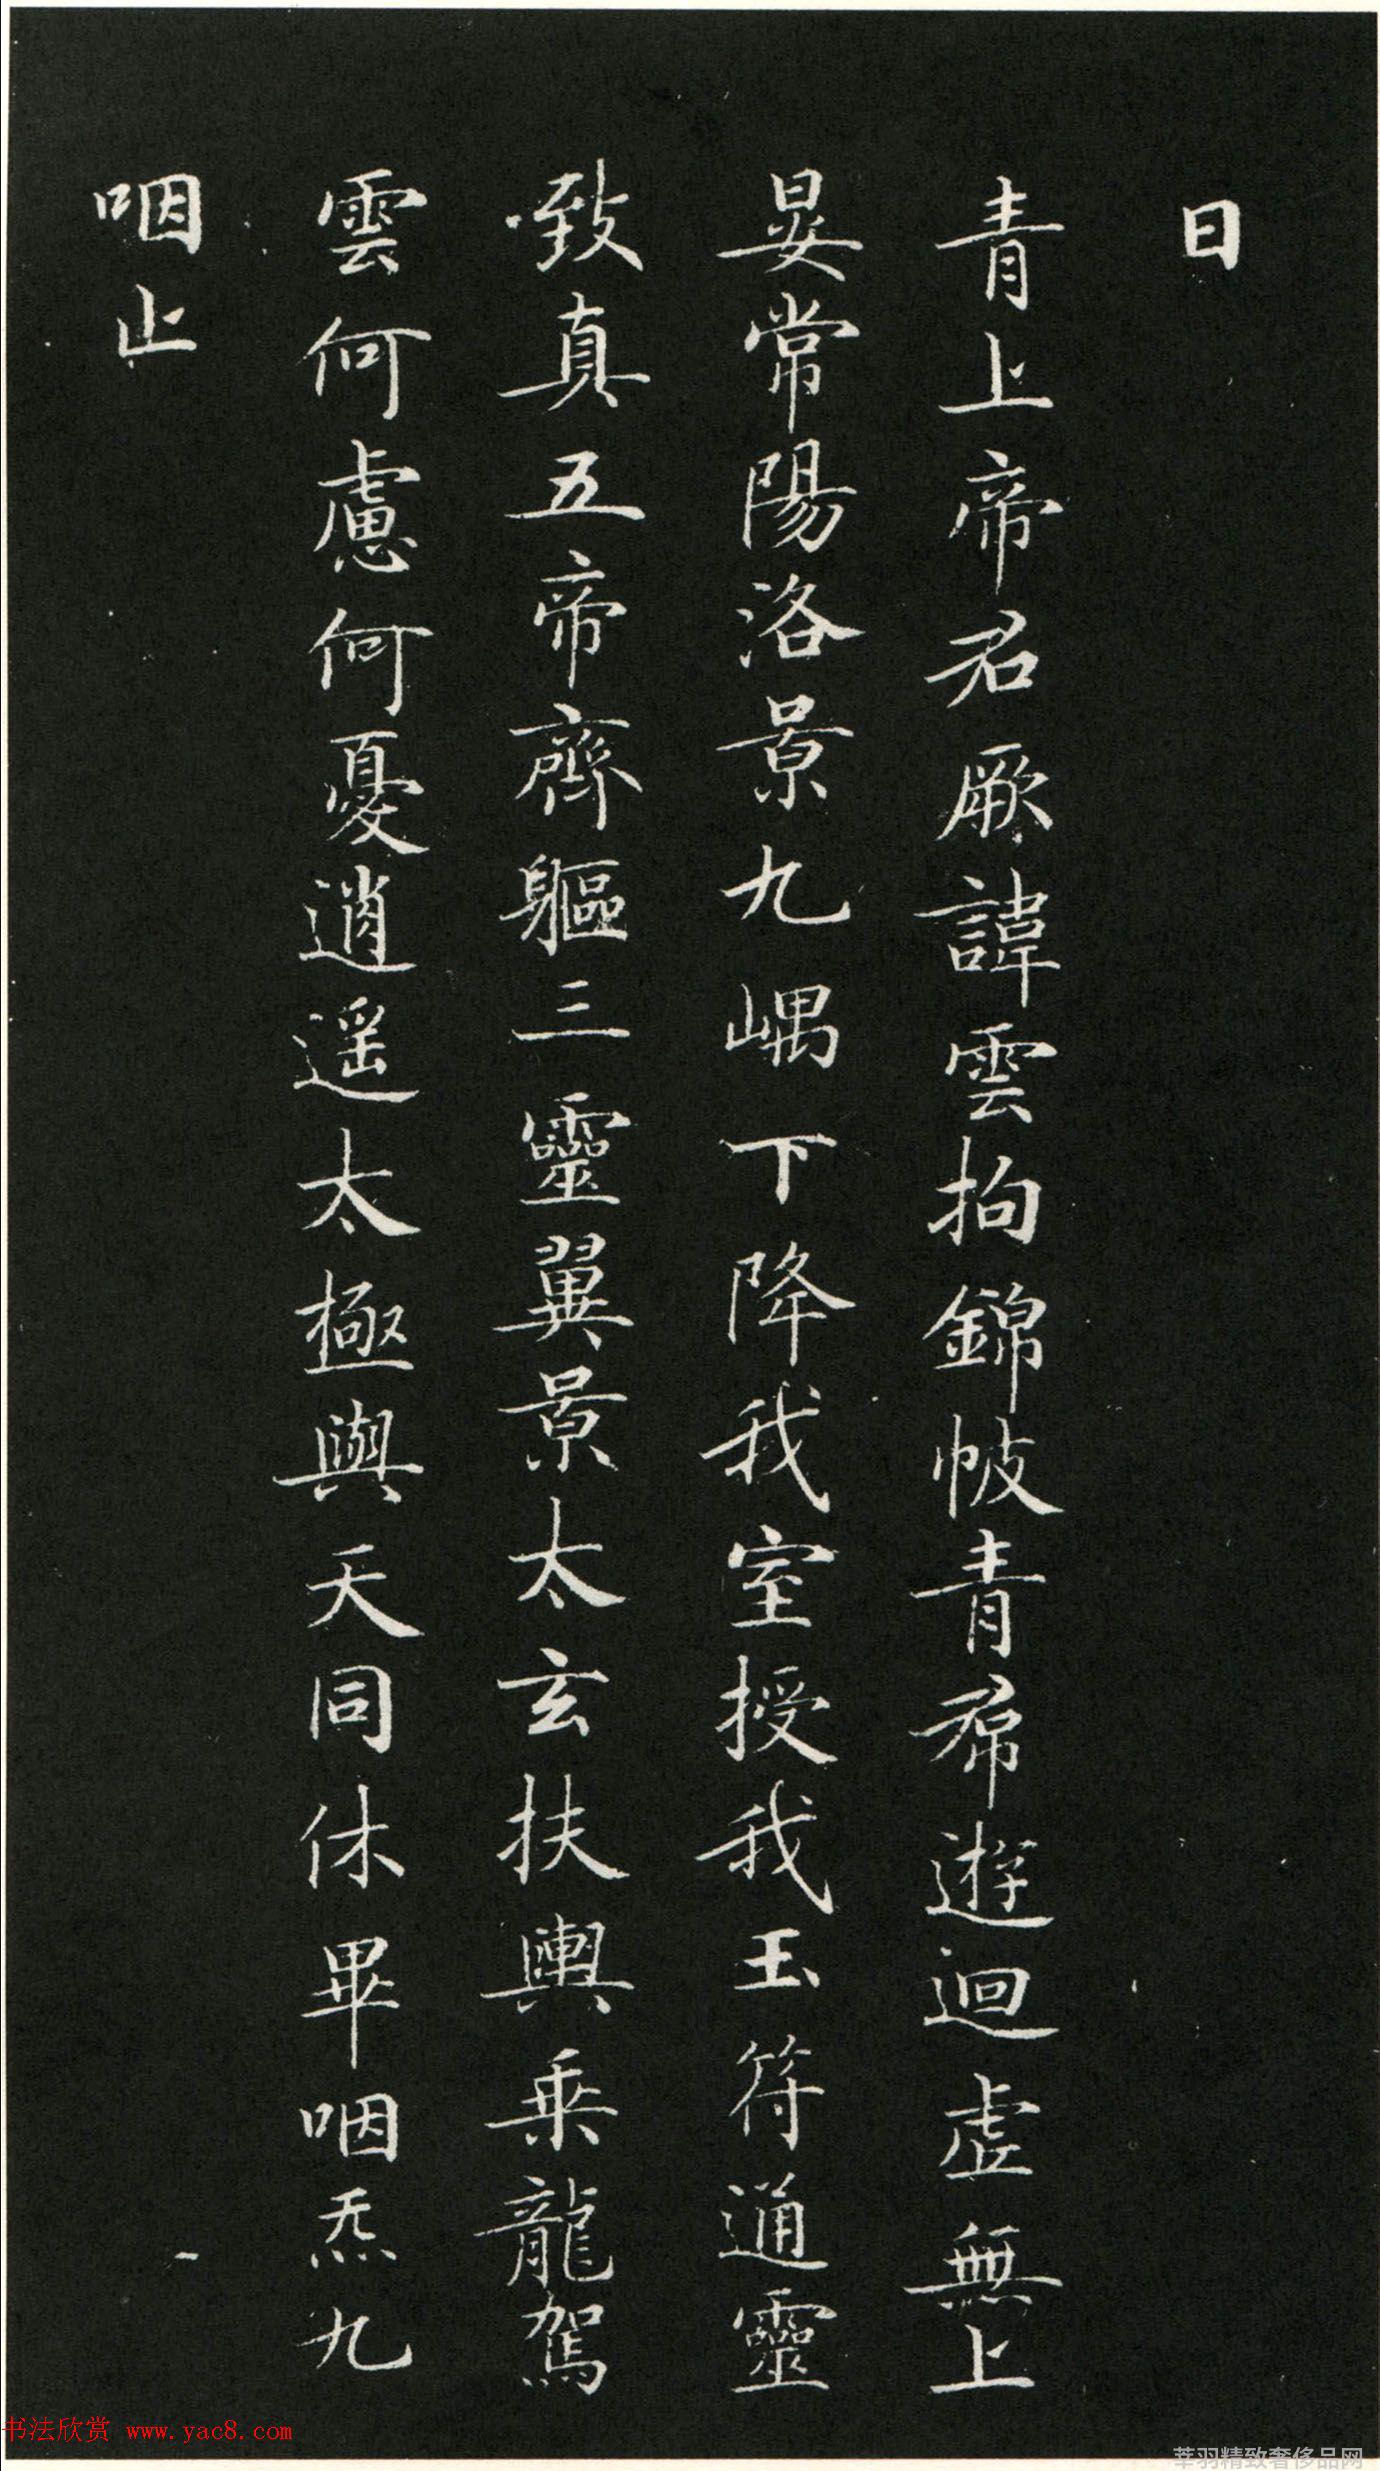 曰
青上帝君厥諱雲拘錦帔青帬遊迴虛無上
晏常陽洛景九嵎下降我室授我玉符通靈
致真五帝齊軀三靈翼景太玄扶輿乘龍駕
雲何慮何憂逍遥太極與天同休畢咽炁九
咽止
书法欣赏 www.yac8.com
莘羽精致奢侈品网